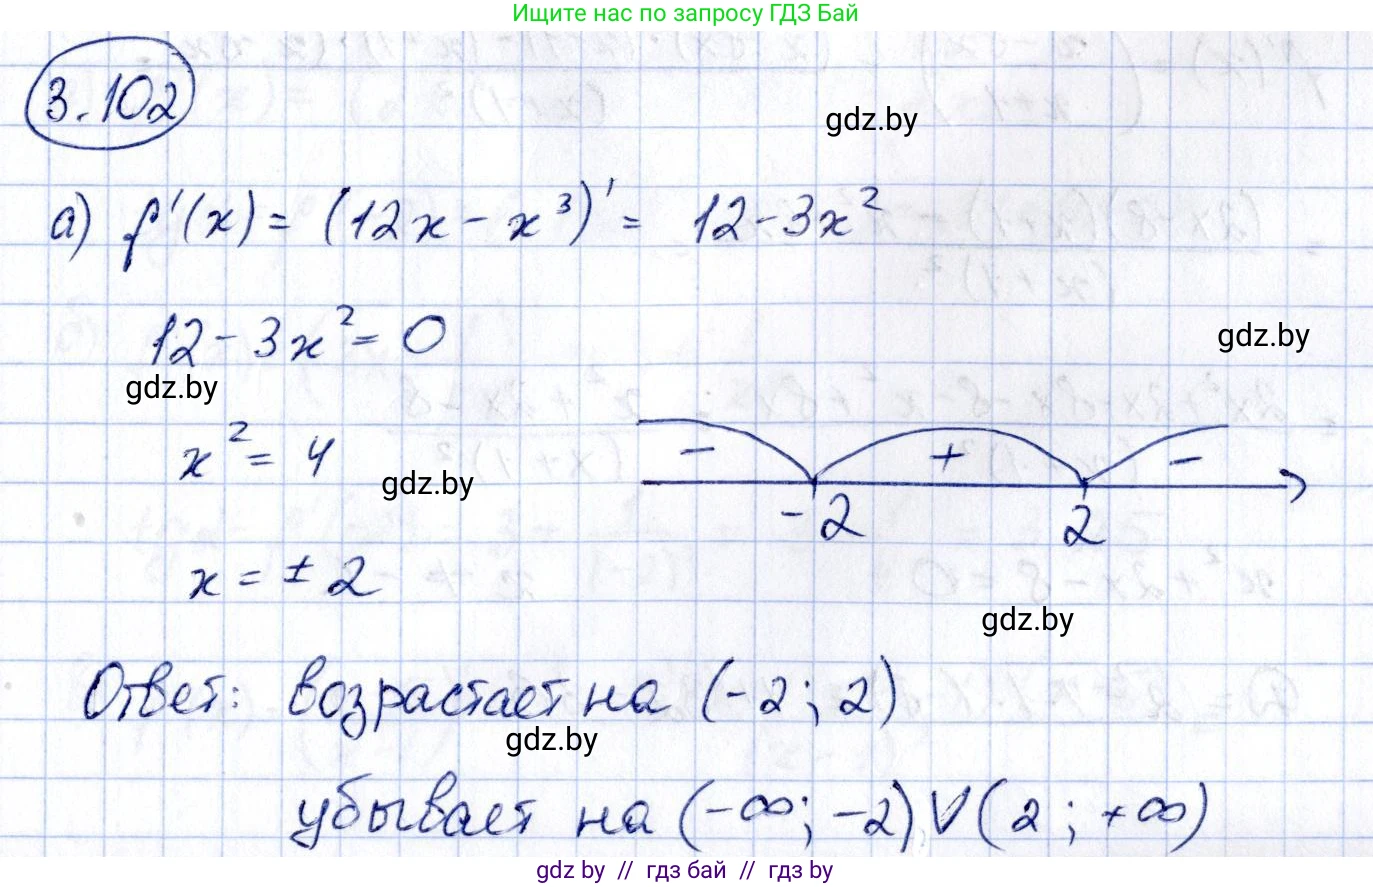 Ищите нас по запросу ГДЗ Бай
3.102
gdz.by
а) f'(x) = (12x - x³)' = 12 - 3x²
12 - 3x² = 0
gdz.by
gdz.by
x² = 4
gdz.by
- + -
-2 2
x = ± 2
gdz.by
Ответ: возрастает на (-2; 2)
gdz.by
убывает на (-∞; -2) V (2; +∞)
gdz.by // гдз бай // гдз by